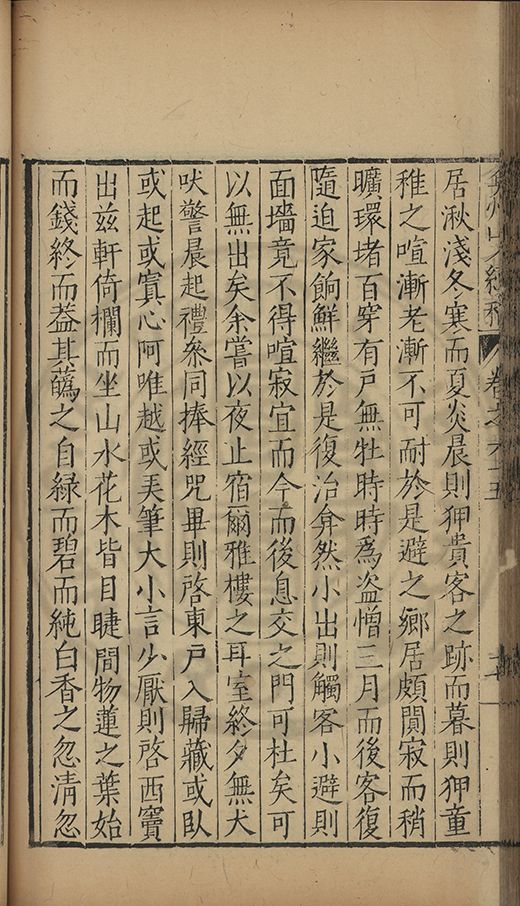 弇州山人續稿 卷之六十五
居湫淺冬寒而夏炎晨則狎貴客之跡而暮則狎童
稚之喧漸老漸不可耐於是避之鄉居頗閴寂而稍
曠環堵百穿有戶無牡時時爲盜憎三月而後客復
隨迫家餉鮮繼於是復治弇然小出則觸客小避則
面墻竟不得喧寂宜而今而後息交之門可杜矣可
以無出矣余嘗以夜止宿爾雅樓之耳室終夕無犬
吠警晨起禮叅同捧經咒畢則啓東戶入歸藏或臥
或起或寘心阿唯越或弄筆大小言少厭則啓西竇
出茲軒倚欄而坐山水花木皆目睫間物蓮之葉始
而錢終而葢其藕之自緑而碧而純白香之忽清忽